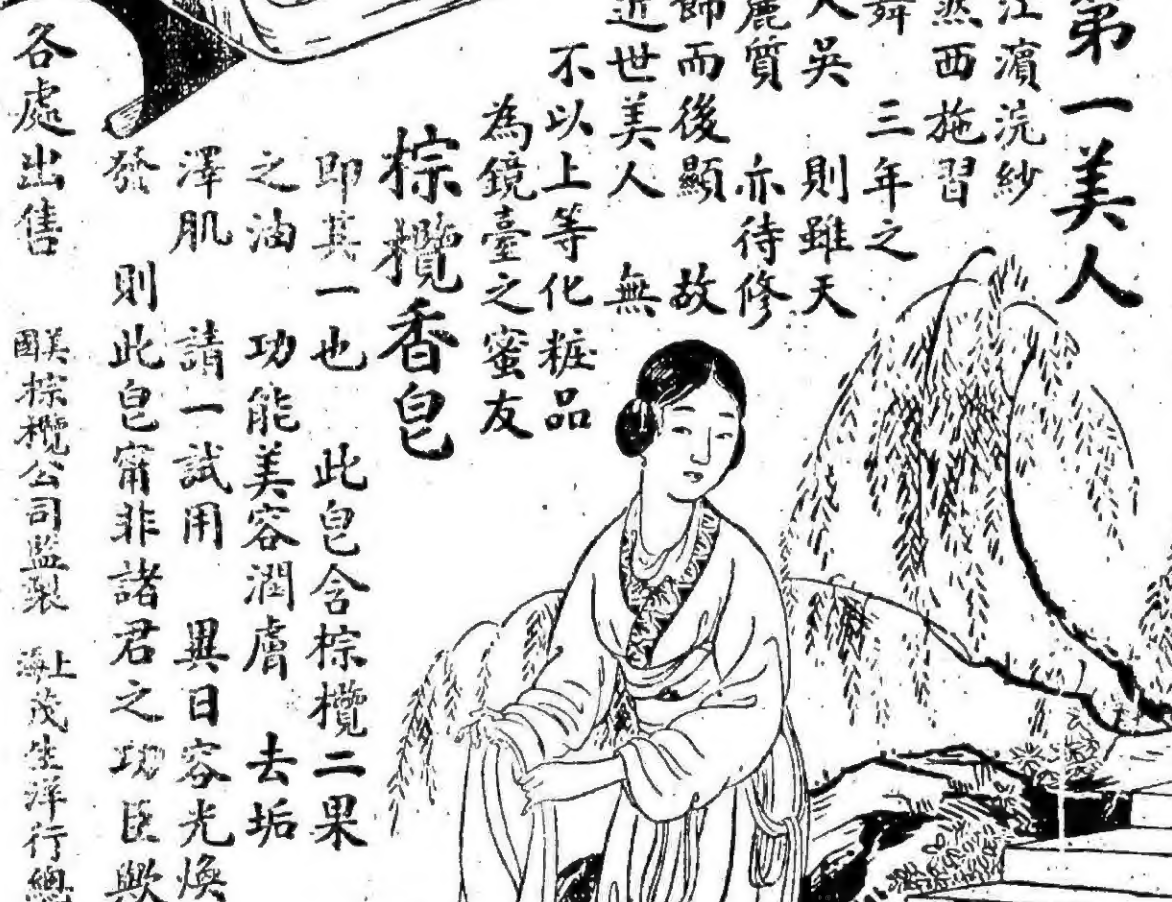 第一美人
江濱浣紗
然西施習
舞 三年之
人吳 則雖天
麗質 亦待修
飾而後顯 故
近世美人 無
不以上等化粧品
為鏡臺之蜜友
棕欖香皂
即其一也 此皂含棕欖二果
之油 功能美容潤膚 去垢
澤肌 請一試用 異日容光煥
發 則此皂甯非諸君之功臣歟
各處出售 美國棕欖公司監製 上海茂生洋行總